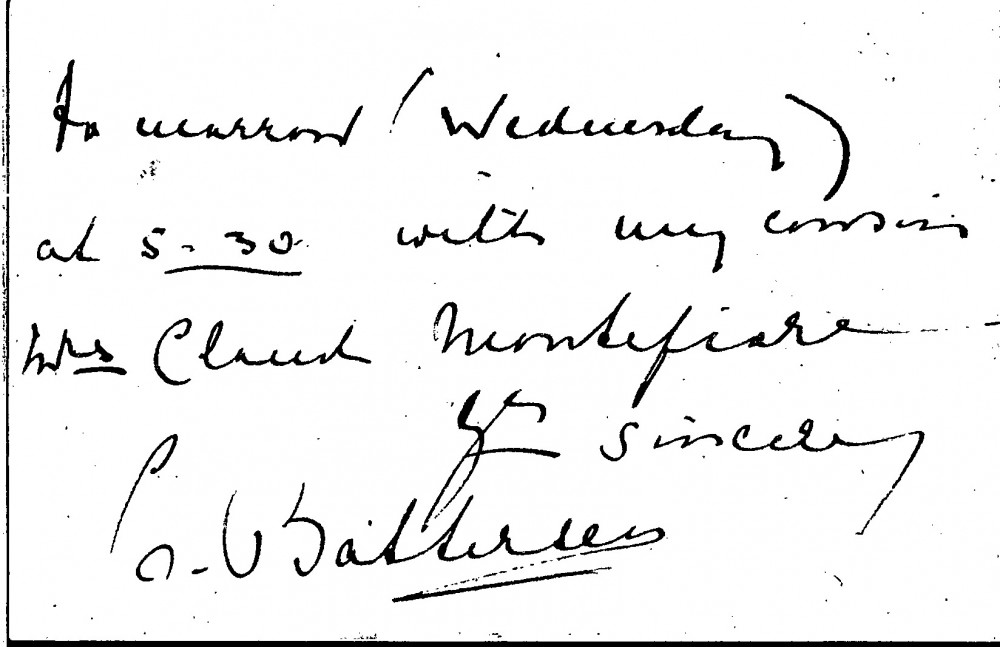 To morrow (Wednesday)
at 5-30 with my cousin
Mrs Claude Montefiore
Yrs sincerely